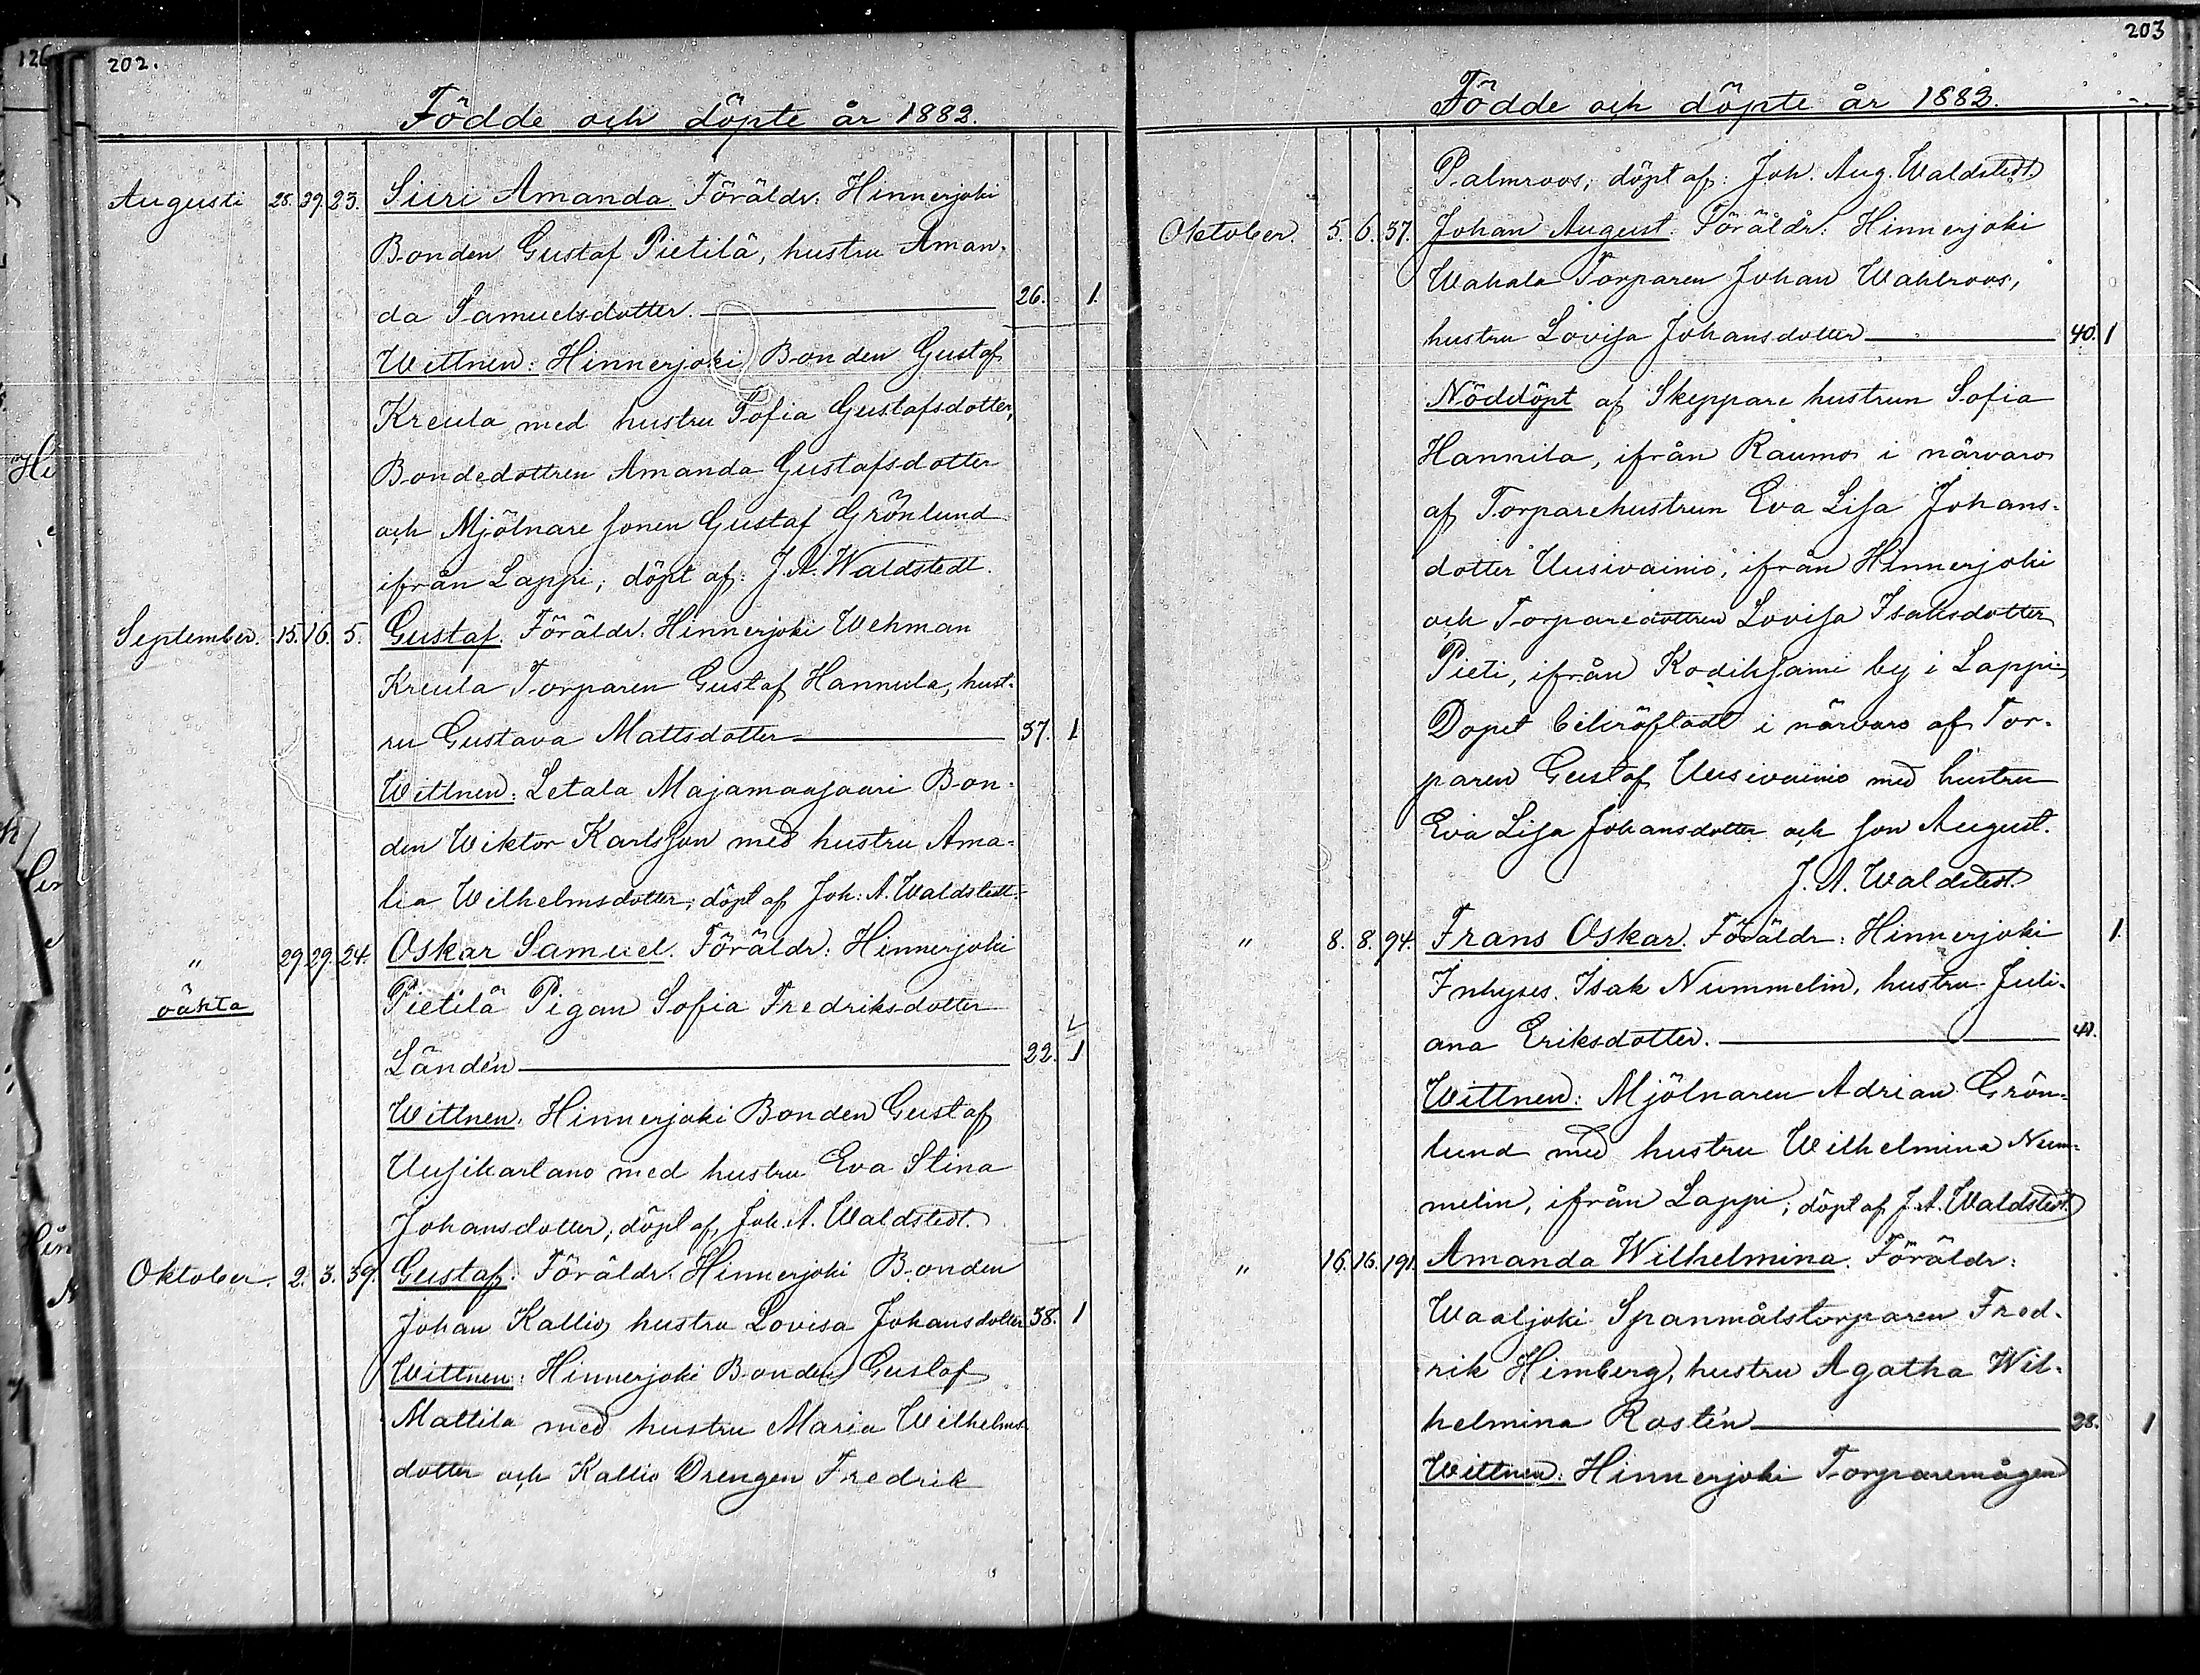 126
202.
Födde och döpte år 1882.
Augusti 28. 29. 23. Siiri Amanda. Föräldr: Hinnerjoki
Bonden Gustaf Pietilä, hustru Aman-
da Samuelsdotter. 26. 1.
Wittnen: Hinnerjoki Bonden Gustaf
Kreula med hustru Sofia Gustafsdotter,
Bondedottren Amanda Gustafsdotter
och Mjölnare sonen Gustaf Grönlund
ifrån Lappi; döpt af: J. A. Waldstedt.
September. 15. 16. 5. Gustaf. Föräldr. Hinnerjoki Wehman
Kreula Torparen Gustaf Hannula, hust-
ru Gustava Mattsdotter 37. 1
Wittnen: Letala Majamaasaari Bon-
den Wiktor Karlsson med hustru Ama-
lia Wilhelmsdotter; döpt af Joh. A. Waldstedt.
" 29. 29. 24. Oskar Samuel. Föräldr: Hinnerjoki
oäkta Pietilä Pigan Sofia Fredriksdotter
Ländén 22. 1
Wittnen: Hinnerjoki Bonden Gustaf
Uusikartano med hustru Eva Stina
Johansdotter; döpt af, Joh. A. Waldstedt.
Oktober. 2. 3. 39. Gustaf. Föräldr. Hinnerjoki Bonden
Johan Kallio, hustru Lovisa Johansdotter 38. 1
Wittnen: Hinnerjoki Bonden Gustaf
Mattila med hustru Maria Wilhelms-
dotter och Kallio Drengen Fredrik
203
Födde och döpte år 1882.
Palmroos; döpt af: Joh. Aug. Waldstedt.
Oktober. 5. 6. 37. Johan August. Föräldr: Hinnerjoki
Wahala Torparen Johan Wahlroos,
hustru Lovisa Johansdotter 40. 1
Nöddöpt af Skeppare hustrun Sofia
Hannila, ifrån Raumo i närvaro
af Torparehustrun Eva Lisa Johans-
dotter Uusivainio, ifrån Hinnerjoki
och Torparedottren Lovisa Isaksdotter
Pieti, ifrån Kodiksami by i Lappi,
Dopet bekräftadt i närvaro af Tor-
paren Gustaf Uusivainio med hustru
Eva Lisa Johansdotter och son August.
J. A. Waldstedt.
" 8. 8. 94. Frans Oskar. Föräldr: Hinnerjoki 1.
Inhyses. Isak Nummelin, hustru Juli-
ana Eriksdotter. 41.
Wittnen: Mjölnaren Adrian Grön-
lund med hustru Wilhelmina Num-
melin, ifrån Lappi; döpt af J. A. Waldstedt.
" 16. 16. 191. Amanda Wilhelmina. Föräldr:
Waaljoki Spanmålstorparen Fred-
rik Himberg, hustru Agatha Wil-
helmina Rostén 28. 1
Wittnen: Hinnerjoki Torparemågen